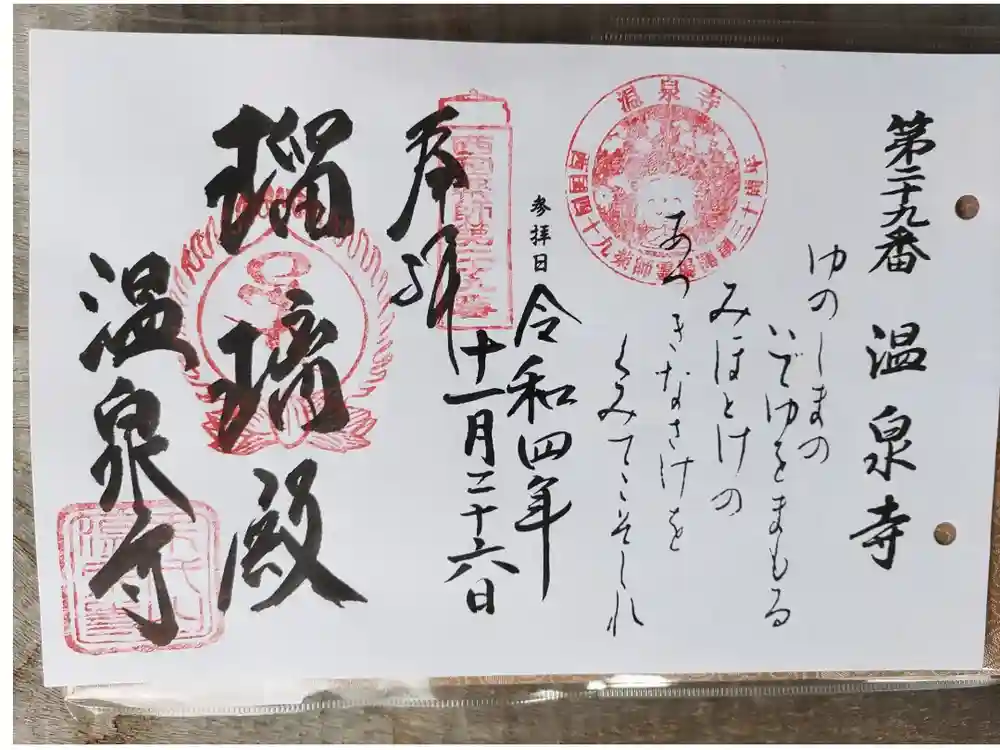 第二十九番 温泉寺
ゆのしまの
いでゆをまもる
みほとけの
あつきなさけを
くみてこそしれ
温泉寺
西国四十九薬師霊場
参拝日
令和四年
十一月二十六日
奉拝
西国薬師第二十九番
瑠璃殿
温泉寺